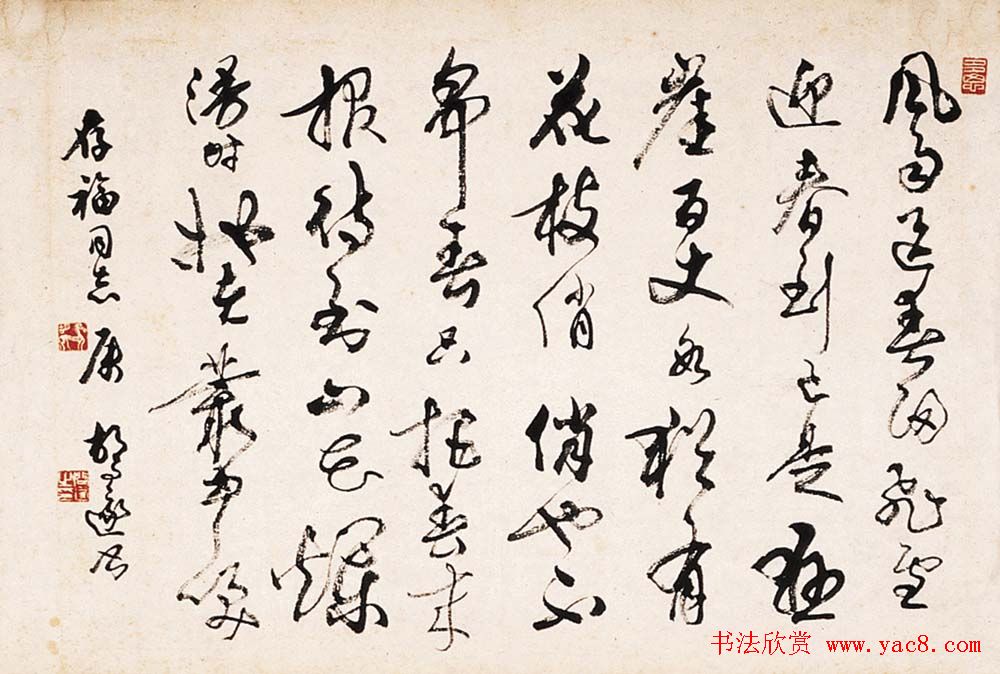 風雨送春归飛雪
迎春到已是悬
崖百丈冰猶有
花枝俏俏也不
爭春只把春来
报待到山花爛
漫时她在叢中笑
存福同志属 胡问遂书
书法欣赏 www.yac8.com